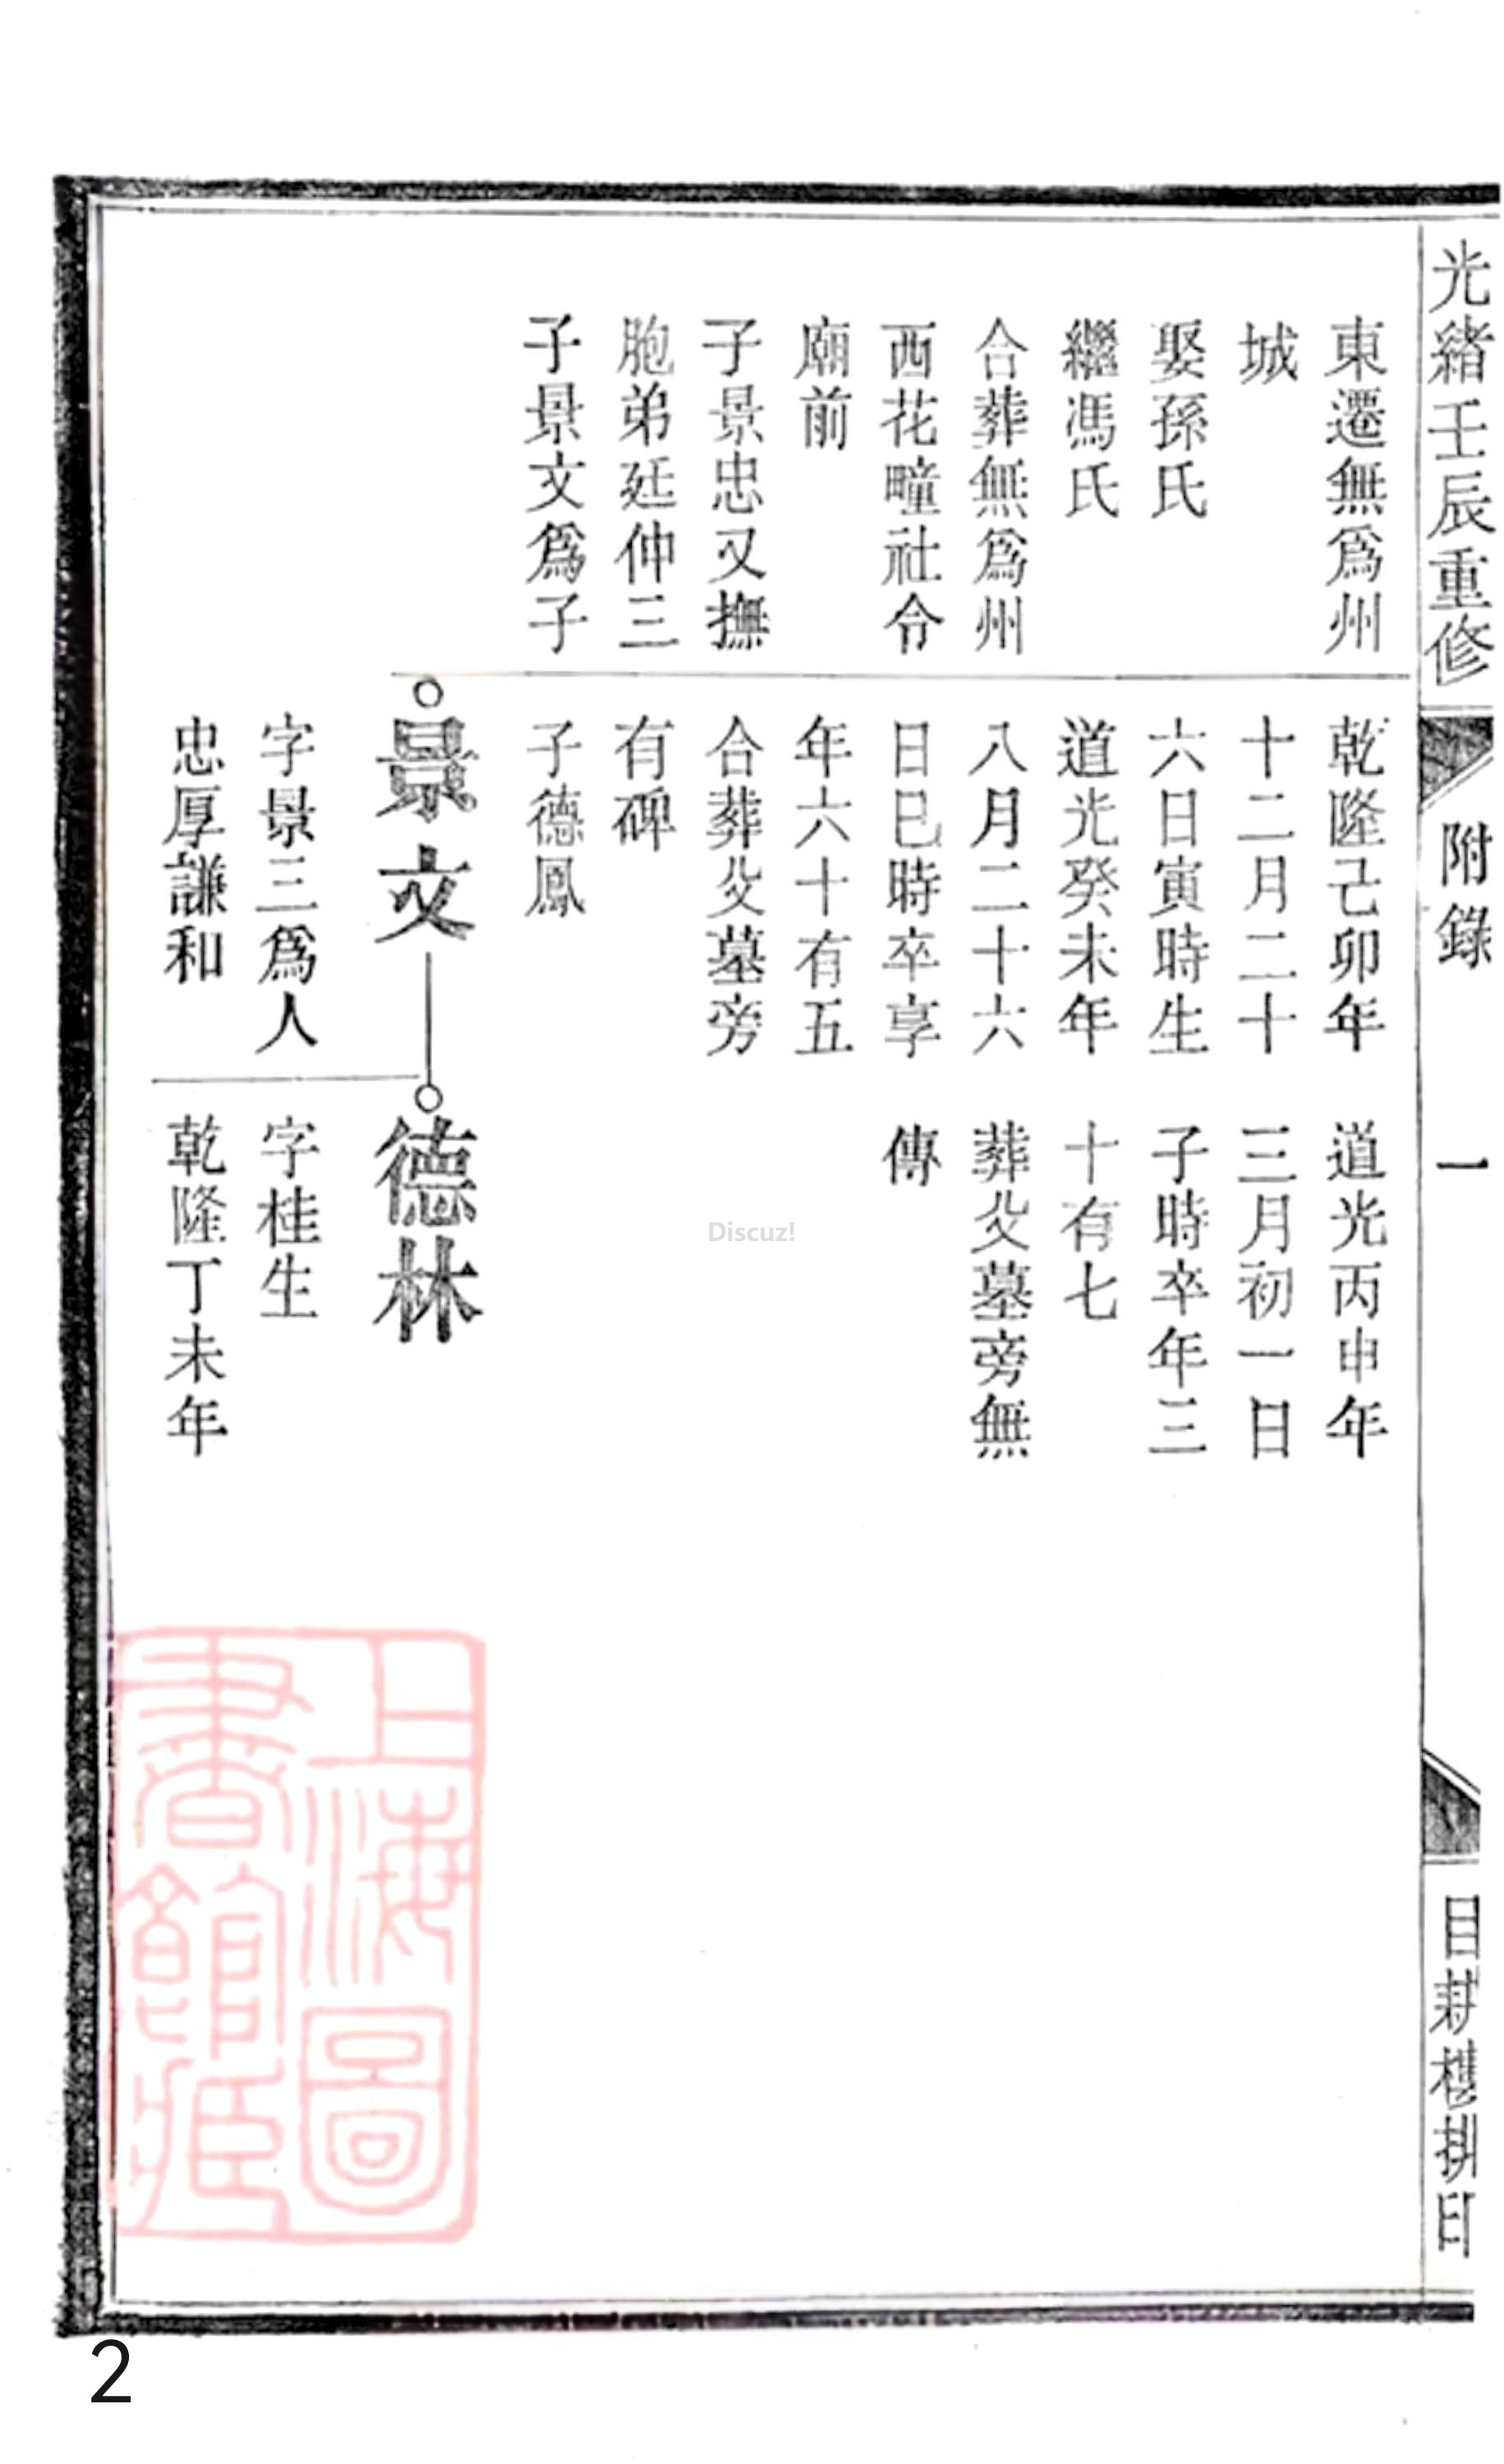 光緒壬辰重修
附錄
一
目耕樓排印
東遷無爲州
城
娶孫氏
繼馮氏
合葬無爲州
西花疃社令
廟前
子景忠又撫
胞弟廷仲三
子景文爲子
乾隆己卯年
十二月二十
六日寅時生
道光癸未年
八月二十六
日巳時卒享
年六十有五
合葬父墓旁
有碑
子德鳳
景文
字景三爲人
忠厚謙和
道光丙申年
三月初一日
子時卒年三
十有七
葬父墓旁無
傳
德林
字桂生
乾隆丁未年
上海圖
書館藏
Discuz!
2